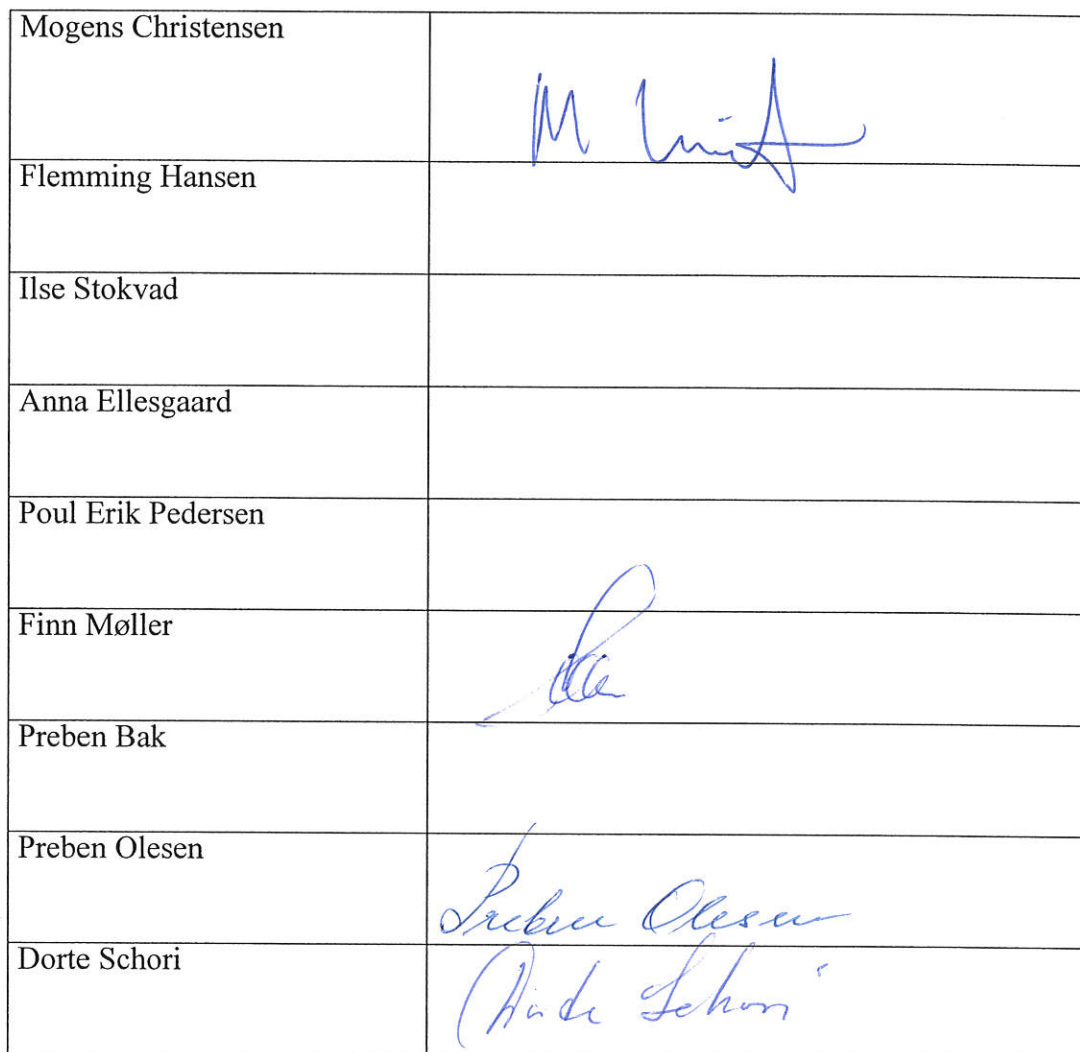 Mogens Christensen
Flemming Hansen
Ilse Stokvad
Anna Ellesgaard
Poul Erik Pedersen
Finn Møller
Preben Bak
Preben Olesen
Preben Olesen
Dorte Schori
Dorte Schori